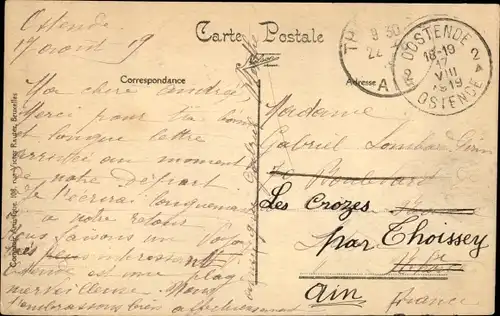 Ostende
17 aout 19
Carte Postale
Correspondance
Adresse
Ma chère Andrée
Merci pour ta bonne
et longue lettre
arrivée au moment
de notre Départ
Je t'écrirai longuement
à notre retour
nous faisons un Voyage
très intéressant
Ostende est une plage
merveilleuse. Nous
t'embrassons bien affectueusement
Madame
Gabriel
Boulevard
Les Crozes
par Thoissey
Ain
France
9 30
24
A
OOSTENDE
18-19
17
VIII
1919
OSTENDE
2 2
Bruxelles